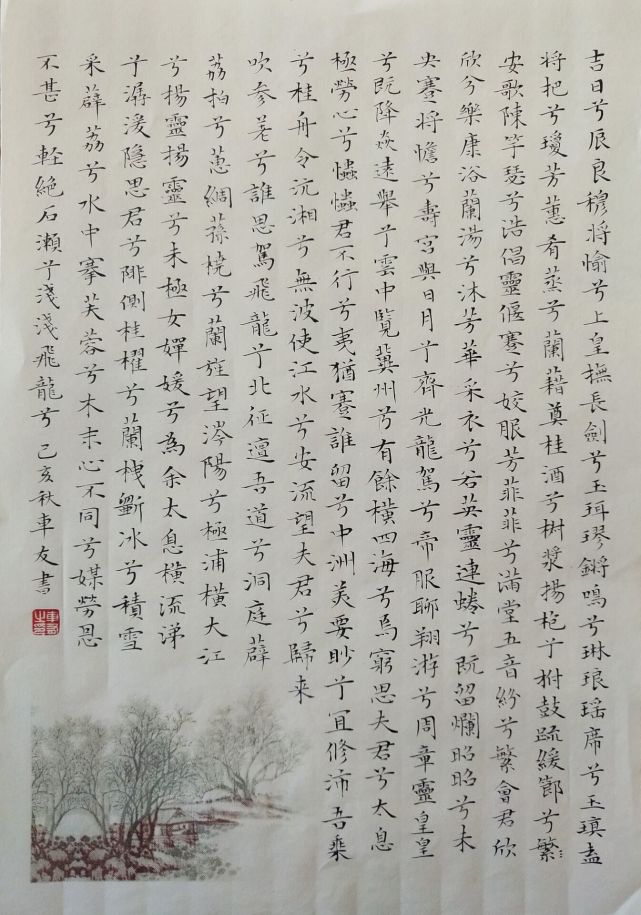 吉日兮辰良穆將愉兮上皇撫長劍兮玉珥璆鏘鳴兮琳琅瑶席兮玉瑱盍
將把兮瓊芳蕙肴蒸兮蘭藉奠桂酒兮樹漿揚枹兮拊鼓疏緩節兮繁
安歌陳竽瑟兮浩倡靈偃蹇兮姣服芳菲菲兮滿堂五音紛兮繁會君欣
欣兮樂康浴蘭湯兮沐芳華采衣兮若英靈連蜷兮既留爛昭昭兮未
央蹇將憺兮壽宮與日月兮齊光龍駕兮帝服聊翔游兮周章靈皇皇
兮既降焱遠舉兮雲中覽冀州兮有餘橫四海兮焉窮思夫君兮太息
極勞心兮忡忡君不行兮夷猶蹇誰留兮中洲美要眇兮宜修沛吾乘
兮桂舟令沅湘兮無波使江水兮安流望夫君兮歸来
吹參差兮誰思駕飛龍兮北征邅吾道兮洞庭薜
荔柏兮蕙綢蓀橈兮蘭旌望涔陽兮極浦橫大江
兮揚靈揚靈兮未極女嬋媛兮為余太息橫流涕
兮潺湲隱思君兮陫側桂櫂兮蘭枻斵冰兮積雪
采薜荔兮水中搴芙蓉兮木末心不同兮媒勞恩
不甚兮輕絕石瀨兮淺淺飛龍兮 己亥秋車友書